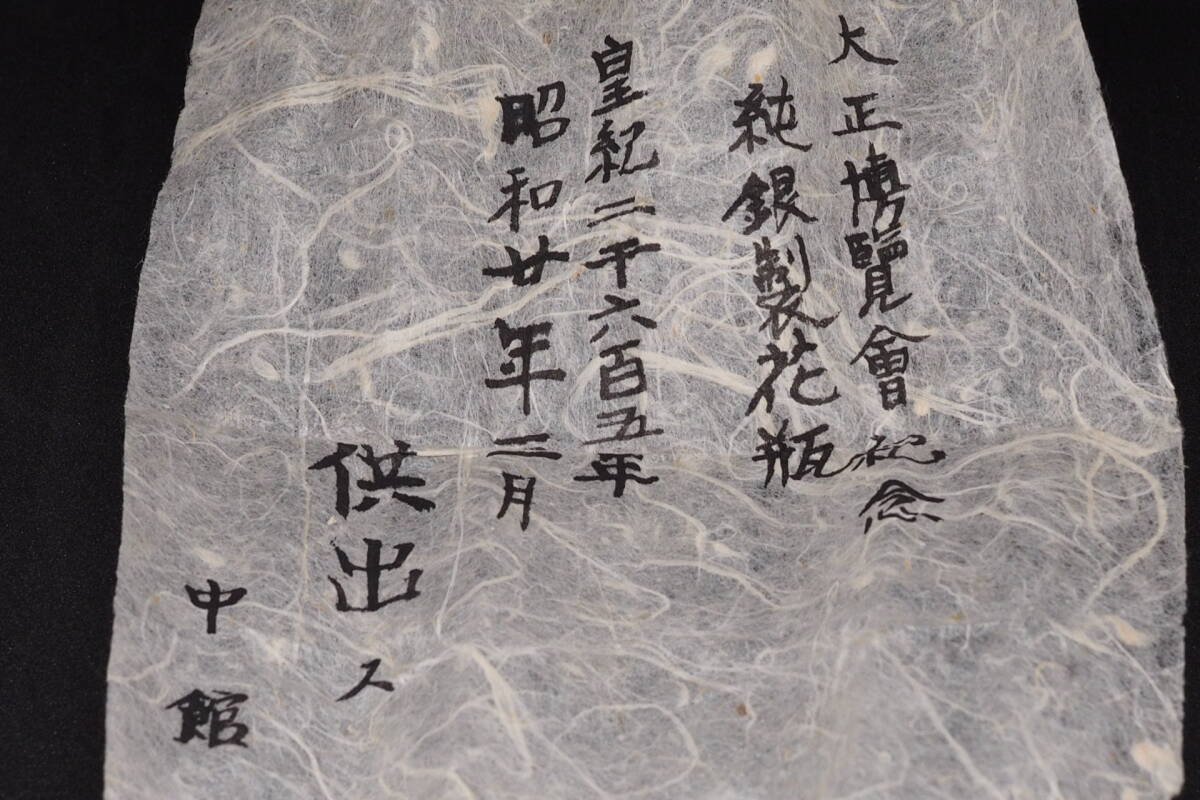 大正博覽會紀念
純銀製花瓶
皇紀二千六百五年
昭和廿年三月
供出ス
中館